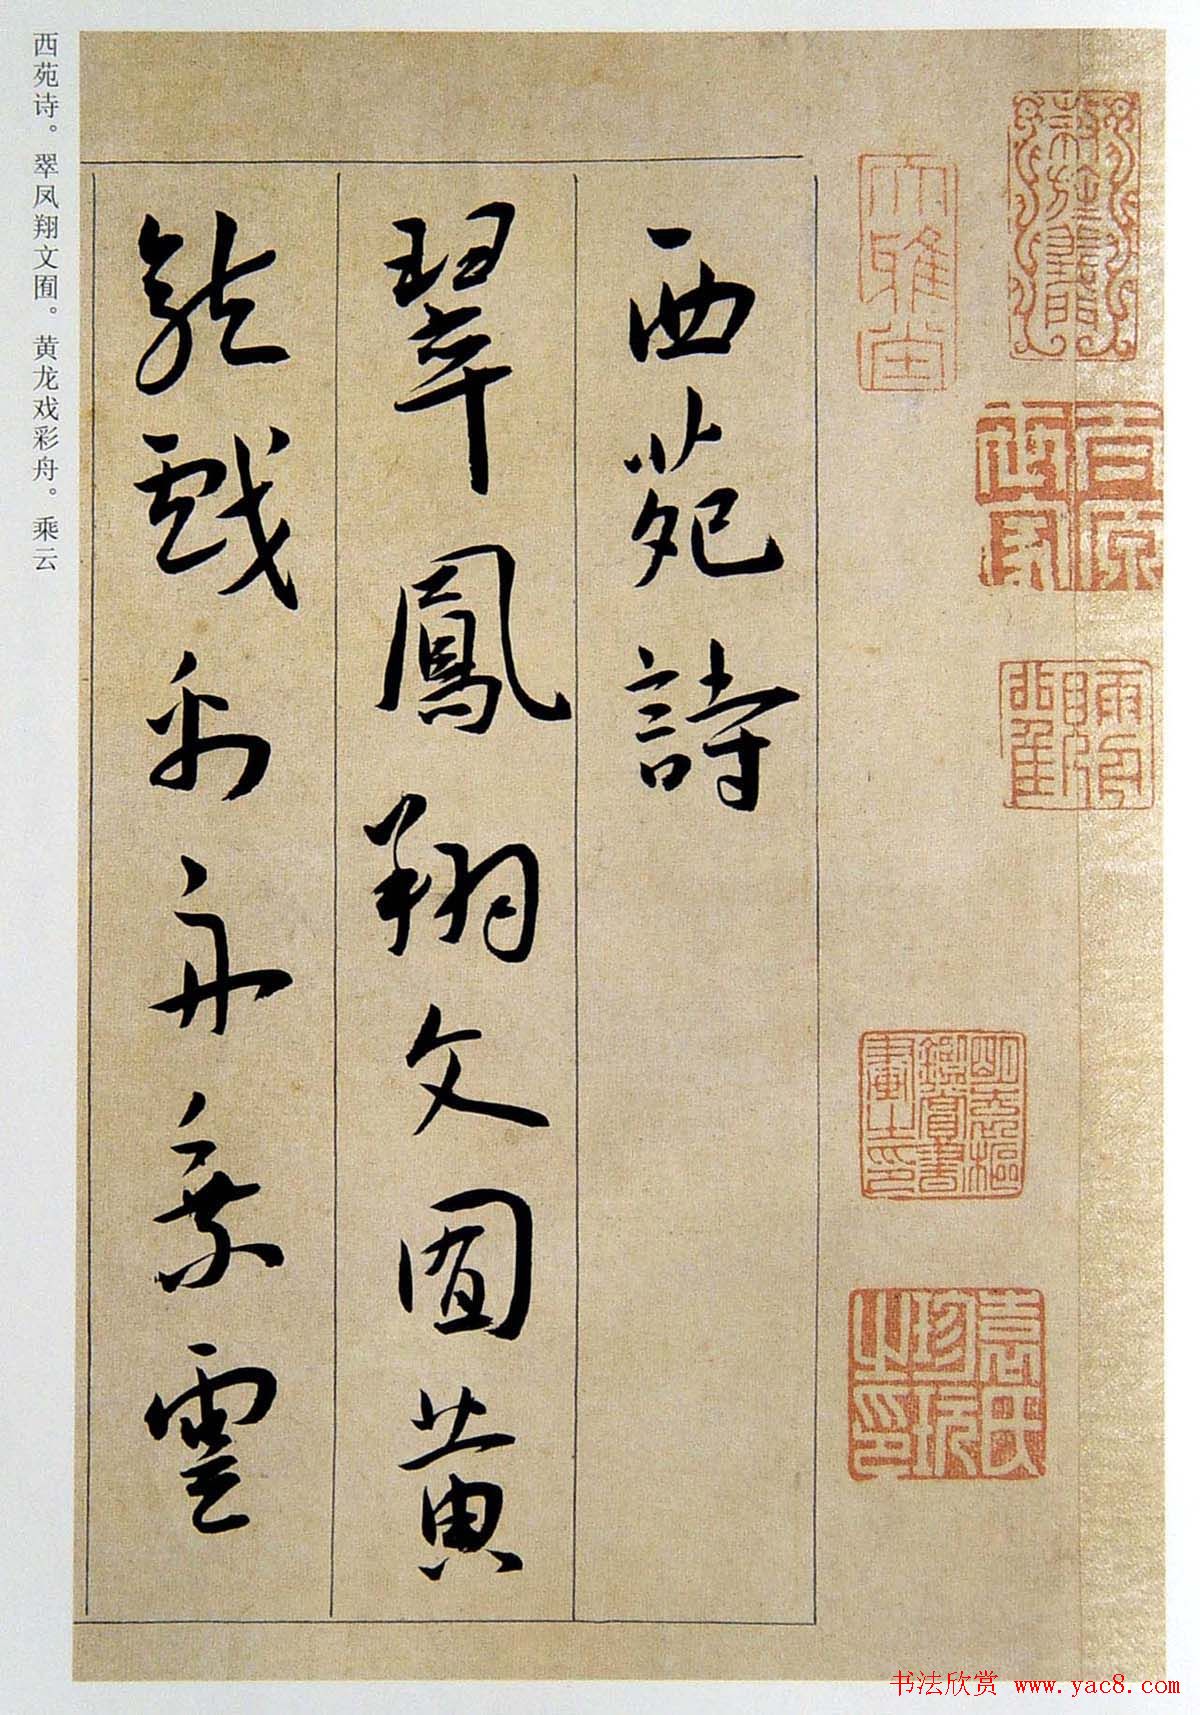 西苑詩
翠鳳翔文囿黄
龍戲彩舟乘雲
西苑诗。翠凤翔文囿。黄龙戏彩舟。乘云
大雅堂
袁氏珍玩之印
书法欣赏 www.yac8.com